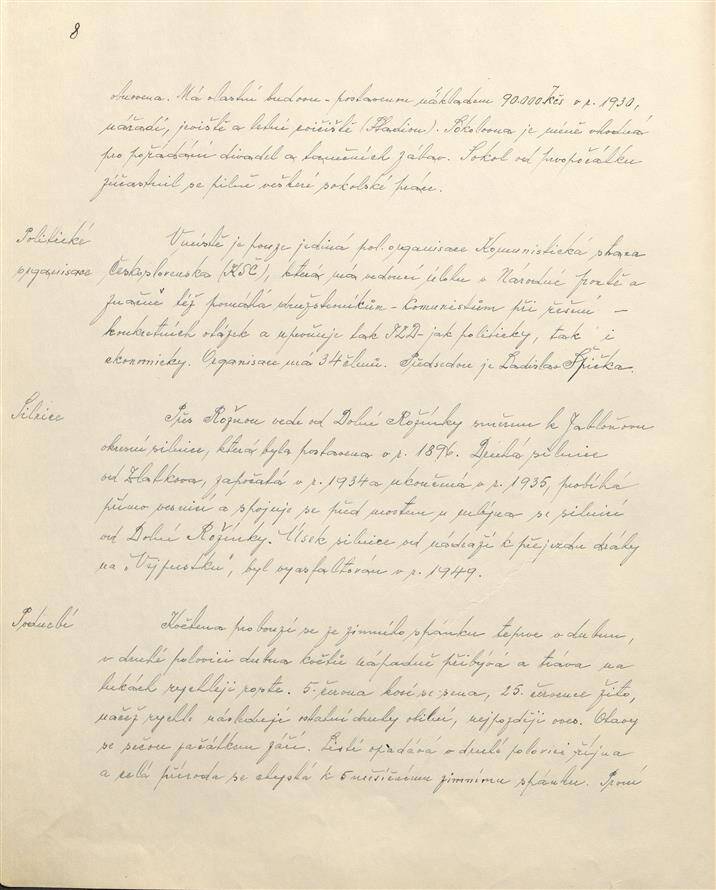 8
obnovena. Má vlastní budovu - postavenou nákladem 90.000 Kčs v r. 1930,
nářadí, jeviště a letní cvičiště (Stadion). Sokolovna je méně vhodná
pro pořádání divadel a tanečních zábav. Sokol od prvopočátku
zúčastnil se pilně veškeré sokolské práce.
Politické
organisace
V místě je pouze jediná pol. organisace Komunistická strana
Československa (KSČ), která má vedoucí úlohu v Národné frontě a
značně též pomáhá družstevníkům - komunistům při řešení -
konkretních otázek a upevňuje tak JZD - jak politicky, tak i
ekonomicky. Organisace má 34 členů. Předsedou je Ladislav Špička.
Silnice
Přes Rožnou vede od Dolní Rožínky směrem k Jabloňovu
okresní silnice, která byla postavena v r. 1896. Druhá silnice
od Zlatkova, započatá v r. 1934 a ukončená v r. 1935, probíhá
přímo vesnicí a spojuje se před mostem u mlýna se silnicí
od Dolní Rožínky. Úsek silnice od nádraží k přejezdu dráhy
na "Vejpustku", byl vyasfaltován v r. 1949.
Podnebí
Květena probouzí se ze zimního spánku teprve v dubnu,
v druhé polovici dubna květů nápadně přibývá a tráva na
lukách rychleji roste. 5. června kosí se sena, 25. července žito,
načež rychle následují ostatní druhy obilní, nejpozději oves. Otavy
se sečou začátkem září. Listí opadává v druhé polovici října
a celá příroda se chystá k 5 měsíčnímu zimnímu spánku. První